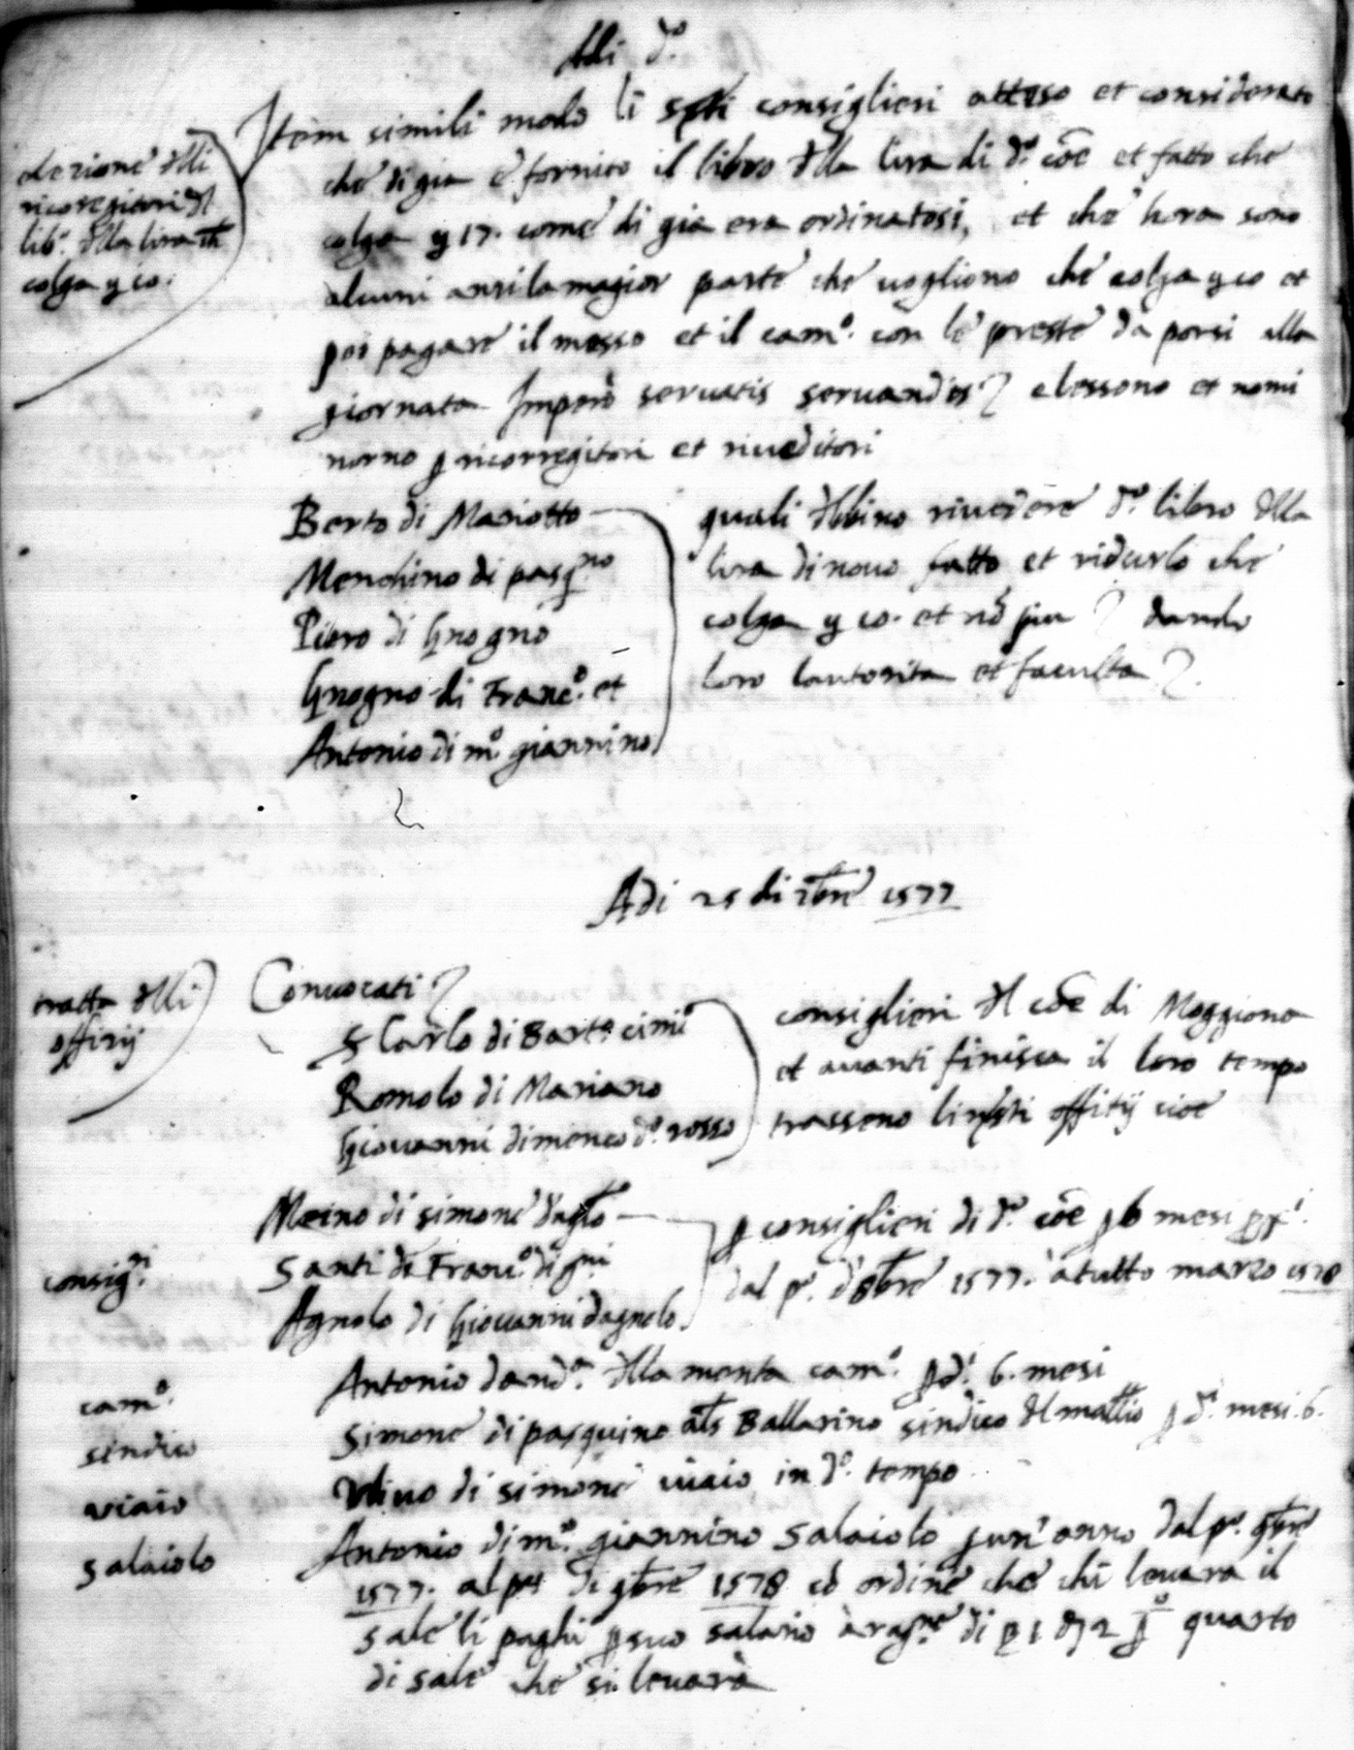 Adi d.o
Item simili modo li spti consiglieri atteso et considerato
che di gia è fornito il libro dlla lira di d.o coe et fatto che
colga y 17. come di gia era ordinatosi, et che hora sono
alcuni anzi la magior parte che vogliono che colga y co et
poi pagare il messo et il cam.o con le preste da porsi alla
giornata Imperò servatis servandis elessono et nomi
norno p ricorregitori et riveditori
elezione dlli
ricoregitori dl
lib.o dlla lira ch
colga y co.
Berto di Mariotto
Menchino di pasq.no
Piero di Gnogno
Gnogno di Franc.o et
Antonio di m.o giannino
quali dbbino rivedere d.o libro dlla
lira di novo fatto et ridurlo che
colga y co. et nõ piu dando
loro lautorita et faculta
Adi 25 di 7bre 1577
tratta dlli
offitij
Convocati
S Carlo di Bart.o cimi
Romolo di Mariano
Giovanni di menco d.o rosso
consiglieri dl coe di Moggiona
et avanti finisca il loro tempo
trasseno li offitij cioe
Meino di simone
Santi di Franc.o di
Agnolo di Giovanni dagnolo
p consiglieri di d.o coe p 6 mesi
dal p.o d'8bre 1577. à tutto marzo 1578
consig.ri
cam.o
Antonio dand.a dlla menta cam.o p d.i 6. mesi
sindico
Simone di pasquino als Ballarino sindico dl p d.i mesi. 6.
viaio
Ulivo di simone viaio in d.o tempo
salaiolo
Antonio di m.o giannino salaiolo p un anno dal p.o 9bre
1577. al di 9bre 1578 cõ ordine che chi levara il
sale li paghi p suo salario à rag.ne di 1 2 p quarto
di sale che si levarà